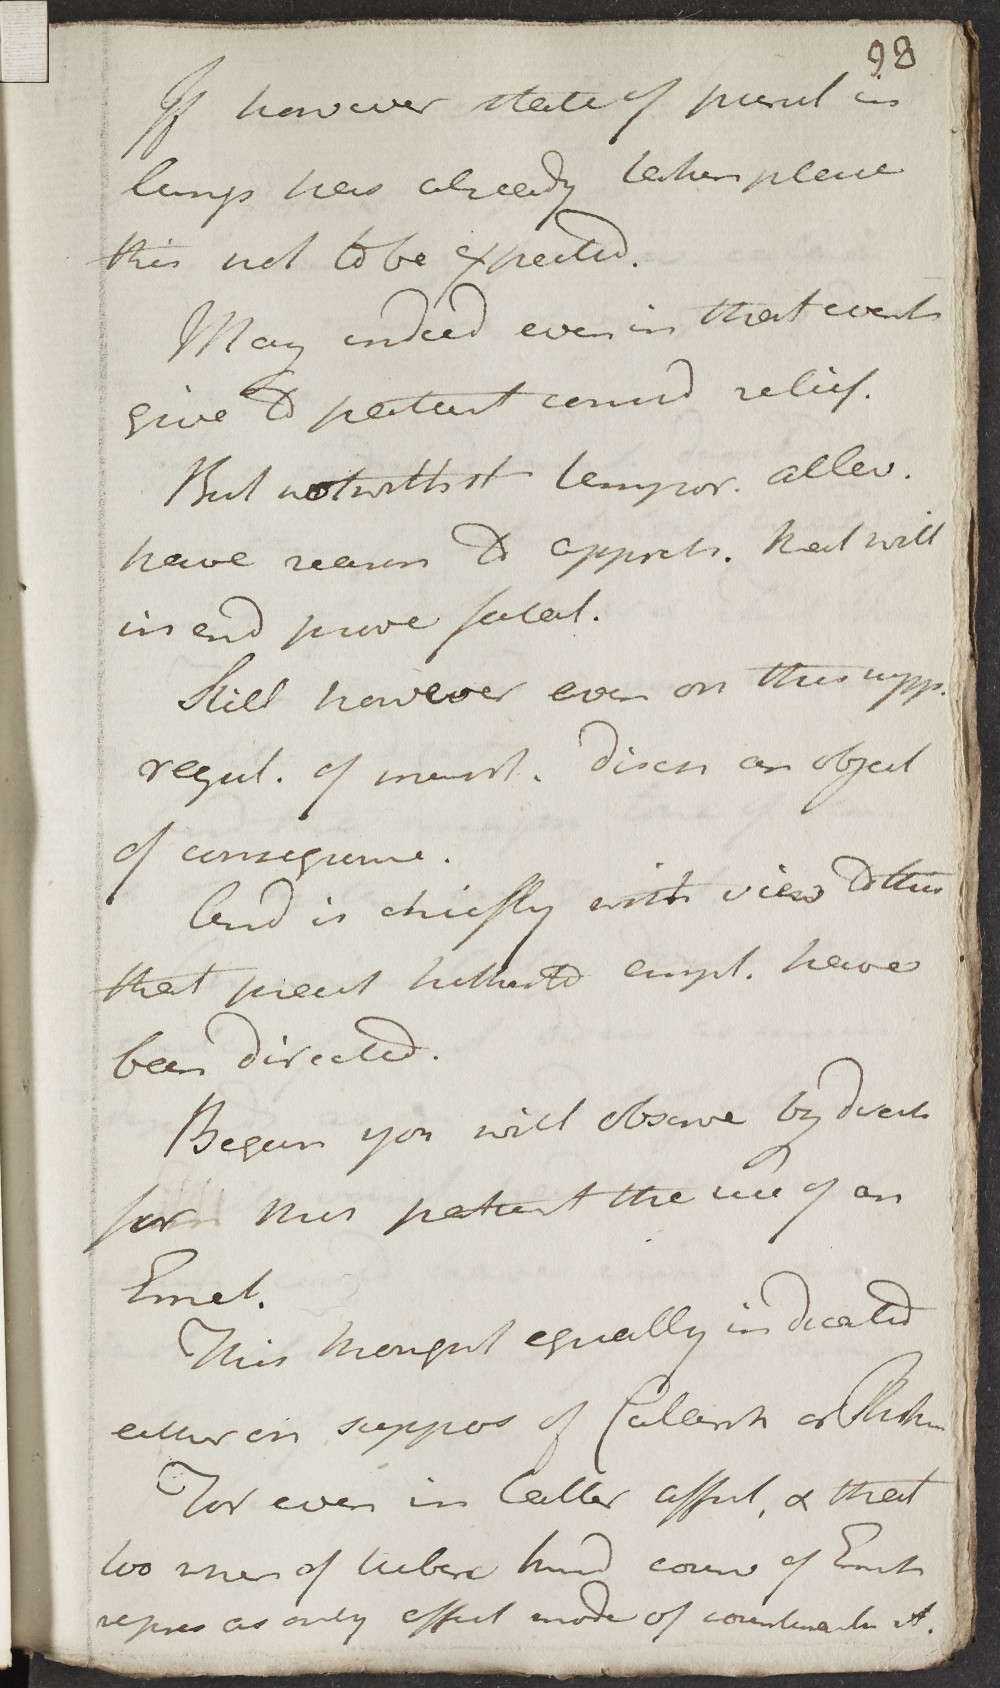 98
If however state of purul in
lungs has already taken place
this not to be expected.
May indeed even in that event
give to patient consid relief.
But notwithst tempor. allev.
have reason to appreh. that will
in end prove fatal.
Still however even on this supp.
regul. of menst. disch an object
of consequence.
And is chiefly with view to this
that pract hitherto empl. have
been directed.
Began you will observe by direct
for this patient the use of an
Emet.
This thought equally indicated
either on suppos of Catarrh or Phthis
For even in latter affect, & that
too when of tuberc kind course of Emet
repres as only effect mode of counteract it.